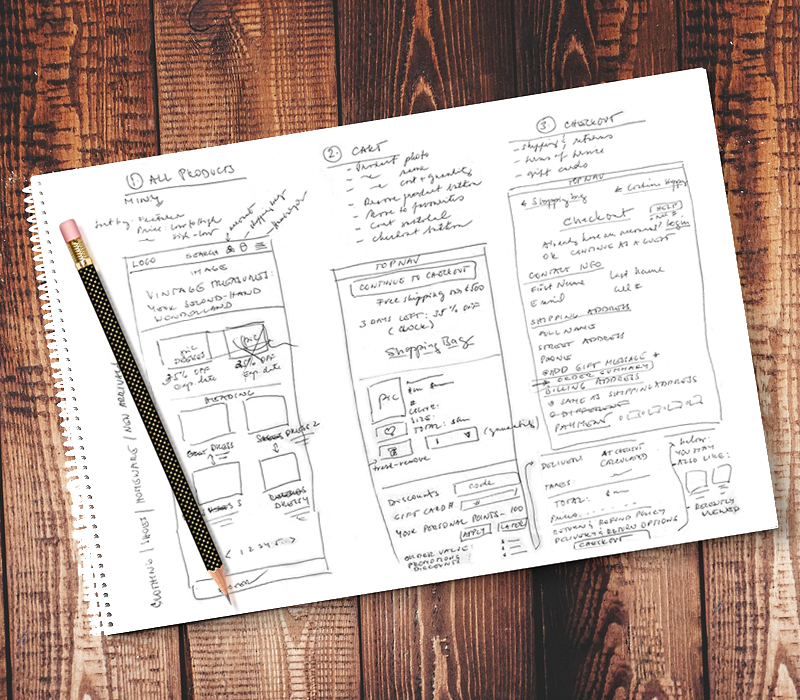 1. ALL PRODUCTS
MINSY
Sort by: Featured
Price: low to high
high-low
account
shopping bag
LOGO SEARCH
IMAGE
VINTAGE TREASURES:
YOUR SECOND-HAND
WONDERLAND
PIC
DRESSES
25% OFF
exp date
PIC
25% OFF
exp date
TRENDING
DRESS 2
DRESS 3
DRESS 4
< 1 2 3 4 5 >
FOOTER
CLOTHING / SHOES / HOMEWARE / NEW ARRIVALS
2. CART
- Product photo
- name
- cost + quantity
- Remove product button
- Move to favorites
- Cart subtotal
- checkout button
TOP NAV
CONTINUE TO CHECKOUT
Free shipping over $500
3 DAYS LEFT: 35% OFF
(CLOCK)
Shopping Bag
PIC
#
COLOR:
SIZE:
TOTAL: sum
1 (quantity)
trash-remove
Discounts code
GIFT CARD# #
YOUR PERSONAL POINTS - 100
APPLY LATER
ORDER VALUE:
PROMOTIONS
DISCOUNTS
3. CHECKOUT
- shipping & returns
- terms of
- gift cards
TOP NAV
< Shopping bag < Continue shopping
Checkout HELP
Already have an account? Login
OR CONTINUE AS A GUEST
CONTACT INFO
First Name Last Name
Email
SHIPPING ADDRESS
FULL NAME
STREET ADDRESS
PHONE
ADD GIFT MESSAGE +
ORDER SUMMARY
BILLING ADDRESS
SAME AS SHIPPING ADDRESS
DIFFERENT
PAYMENT
DELIVERY: AT CHECKOUT
CALCULATED
TAXES
TOTAL:
RETURN & REFUND POLICY
DELIVERY & RETURN OPTIONS
CHECKOUT
below:
YOU MAY
ALSO LIKE:
RECENTLY
VIEWED